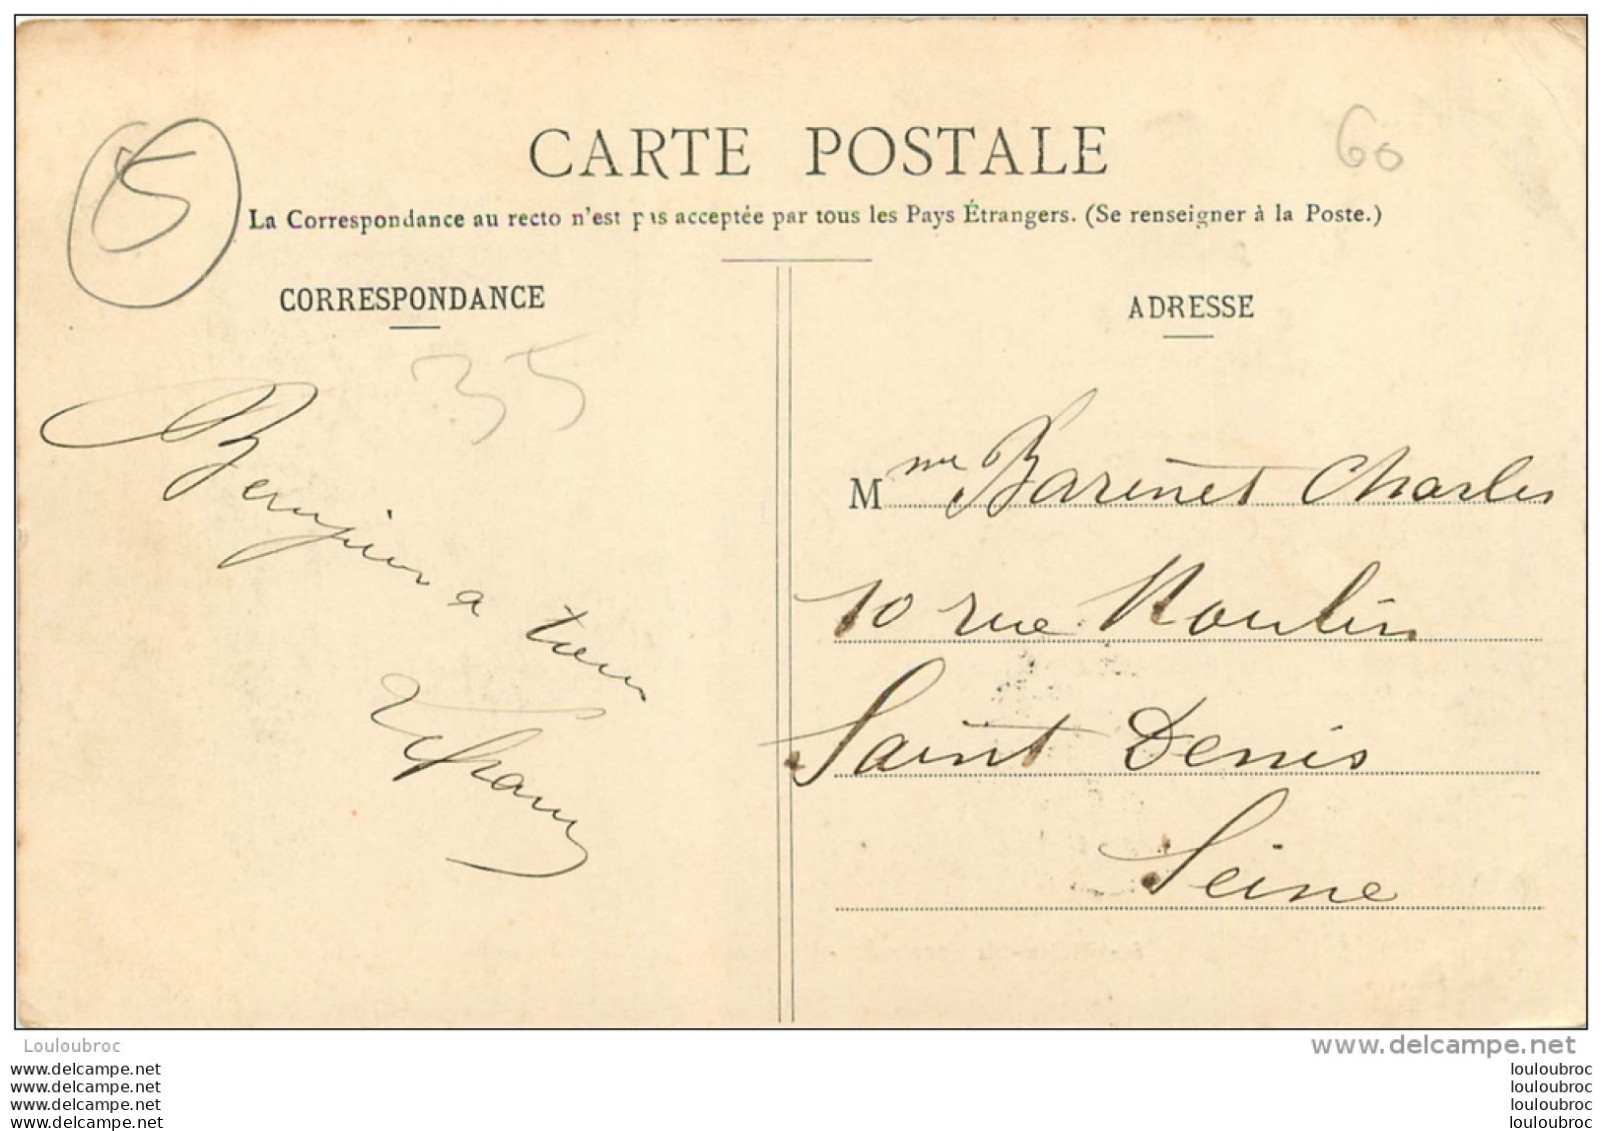 5
60
CARTE POSTALE
La Correspondance au recto n'est pas acceptée par tous les Pays Étrangers. (Se renseigner à la Poste.)
CORRESPONDANCE
35
a tous
ADRESSE
Mme Barenet Charles
10 rue Moulin
Saint Denis
Seine
Louloubroc
www.delcampe.net
www.delcampe.net
www.delcampe.net
www.delcampe.net
www.delcampe.net
louloubroc
louloubroc
louloubroc
louloubroc